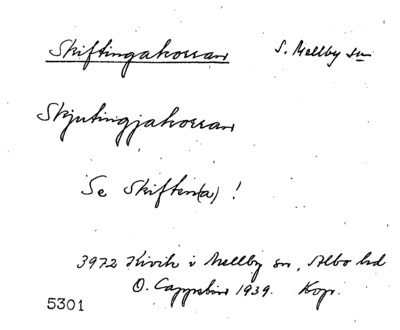 Skiftingakorran S. Mellby sn
Skjutingjakorran
Se Skiften(a)!
3972 Kivik i Mellby sn, Albo hd
O. Cappelin 1939. Kop.
5301